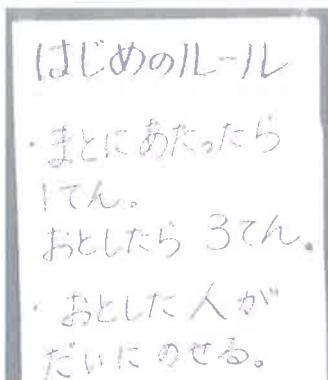 はじめのルール
・まとにあたったら
1てん。
おとしたら 3てん。
・おとした人が
だいにのせる。